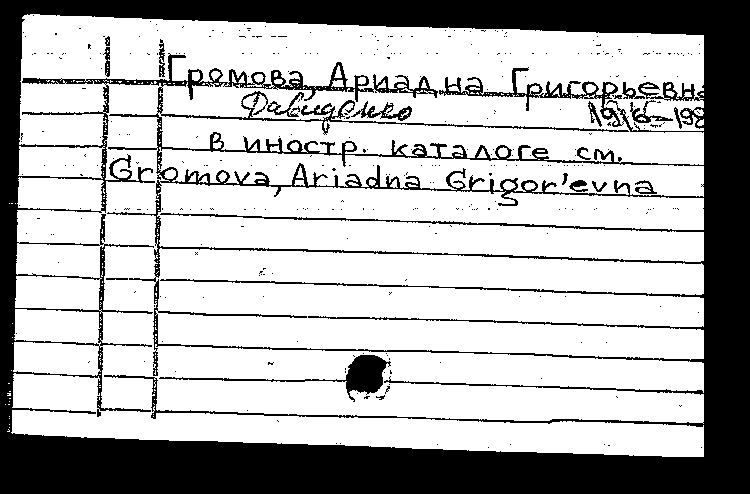 Громова, Ариадна Григорьевна
Давиденко 1916-198
в иностр. каталоге см.
Gromova, Ariadna Grigor'evna